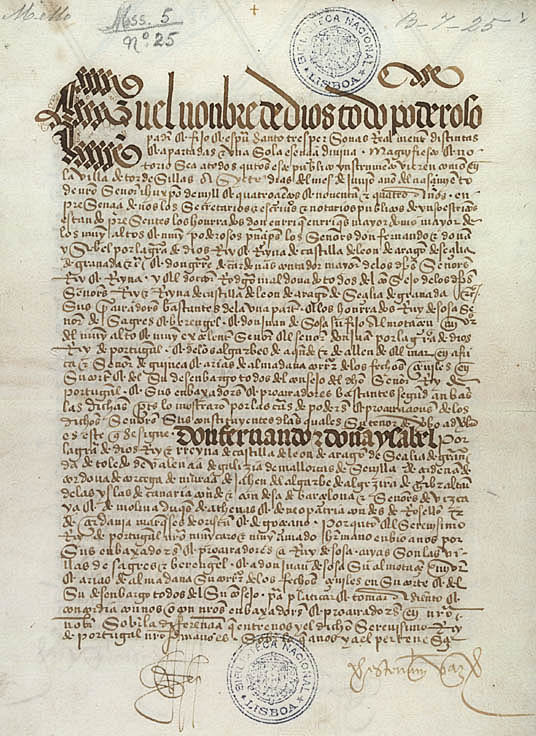 Mello
Mss. 5
nº. 25
B-7-25
BIBLIOTECA NACIONAL
LISBOA
En el nonbre de dios todo poderoso
padre & fijo & espu santo tres personas realmente distintas
& apartadas & una sola esencia divina. Magnifiesto & no
torio sea a todos quantos este publico ynstrumento vieren como en
la villa de tordesillas a siete dias del mes de junio año del nasçimiento
de nro Señor ihu xpo de mill & quatroçientos & noventa & quatro años. en
presençia de nos los Secretarios & escrivanos & notarios publicos de yuso escriptos
estando presentes los honrrados don enrrique enrriques mayordomo mayor de
los muy altos & muy poderosos prinçipes los Señores don fernando & doña
ysabel por la graçia de dios Rey & Reyna de castilla de leon de aragon de seçilia
de granada &c. & don gutierre de cardenas contador mayor de los dichos Señores
Rey & Reyna. & el doctor Rodrigo maldonado todos del consejo de los dichos
Señores Rey & Reyna de castilla de leon de aragon de Seçilia de granada &c.
Sus procuradores bastantes de la una parte. & los honrrados Ruy de sosa Se
ñor de Sagres & berengel. & don juan de Sosa su fijo almotaçen mayor
del muy alto & muy exçelente Señor el Señor don juan por la graçia de dios
Rey de portugal & de los algarbes de aquende & de allende el mar en afri
ca & Señor de guinea & arias de almadana corregidor de los fechos çeviles en
su corte & del su desenbargo todos del consejo del dicho Señor Rey de
portugal & sus enbaxadores & procuradores bastantes segund anbas
las dichas partes lo mostraron por las cartas de poderes & procuraçiones de los
dichos Señores Sus constituyentes de las quales su tenor de verbo ad verbo
es este que se sigue Don fernando & doña ysabel por
la graçia de dios Rey & Reyna de castilla de leon de aragon de Seçilia de grana
da de toledo de valençia de galizia de mallorcas de Sevilla de çerdeña de
cordova de corçega de murçia de jahen del algarbe de algezira de gibraltar
de las yslas de canaria conde & condesa de barçelona & Señores de vizca
ya & de molina duques de athenas & de neopatria condes de Rosellon &
de çerdania marqueses de oristan & de goçiano. Por quanto el Serenisimo
Rey de portugal nuestro muy caro & muy amado hermano enbio a nos por
sus enbaxadores & procuradores a Ruy de sosa cuyas son las vi
llas de sagres & berengel & a don juan de sosa su almotaçen mayor
& arias de almadana su corregidor de los fechos çeviles en su corte & del
su desenbargo todos del su consejo. para platicar & tomar asiento &
concordia con nos o con nuestros enbaxadores & procuradores en nuestro
nonbre sobre la diferençia que entre nos y el dicho Serenisimo Rey
de portugal nuestro hermano es sobre lo que a nos y a el pertenesçe
BIBLIOTECA NACIONAL
LISBOA